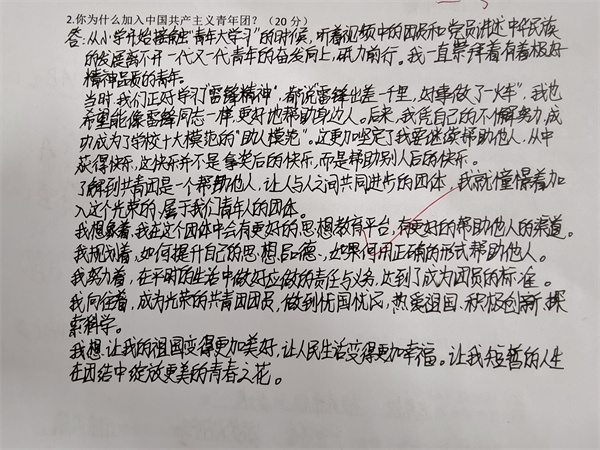 2.你为什么加入中国共产主义青年团？（20分）
答:从小学开始接触"青年大学习"的时候,听着视频中的团员和党员讲述中华民族
的发展离不开一代又一代青年的奋发向上,砥力前行。我一直崇拜着有着极好
精神品质的青年。
当时,我们正好学习"雷锋精神",都说雷锋出差一千里,好事做了一火车",我也
希望能像雷锋同志一样,更好地帮助身边人。后来,我凭自己的不懈努力,成
功成为了学校十大模范的"助人模范"。这更加坚定了我要继续帮助他人,从中
获得快乐,这快乐并不是拿奖后的快乐,而是帮助别人后的快乐。
了解到共青团是一个帮助他人,让人与人之间共同进步的团体,我就憧憬着加
入这个光荣的,属于我们青年人的团体。
我想象着,我在这个团体中会有更好的思想教育平台,有更好的帮助他人的渠道。
我规划着,如何提升自己的思想品德、如何用正确的形式帮助他人。
我努力着,在平时的生活中做好应做的责任与义务,达到了成为团员的标准。
我向往着,成为光荣的共青团团员,做到忧国忧民,热爱祖国、积极创新、探
索科学。
我想,让我的祖国变得更加美好,让人民生活变得更加幸福。让我短暂的人生
在团结中绽放更美的青春之花。